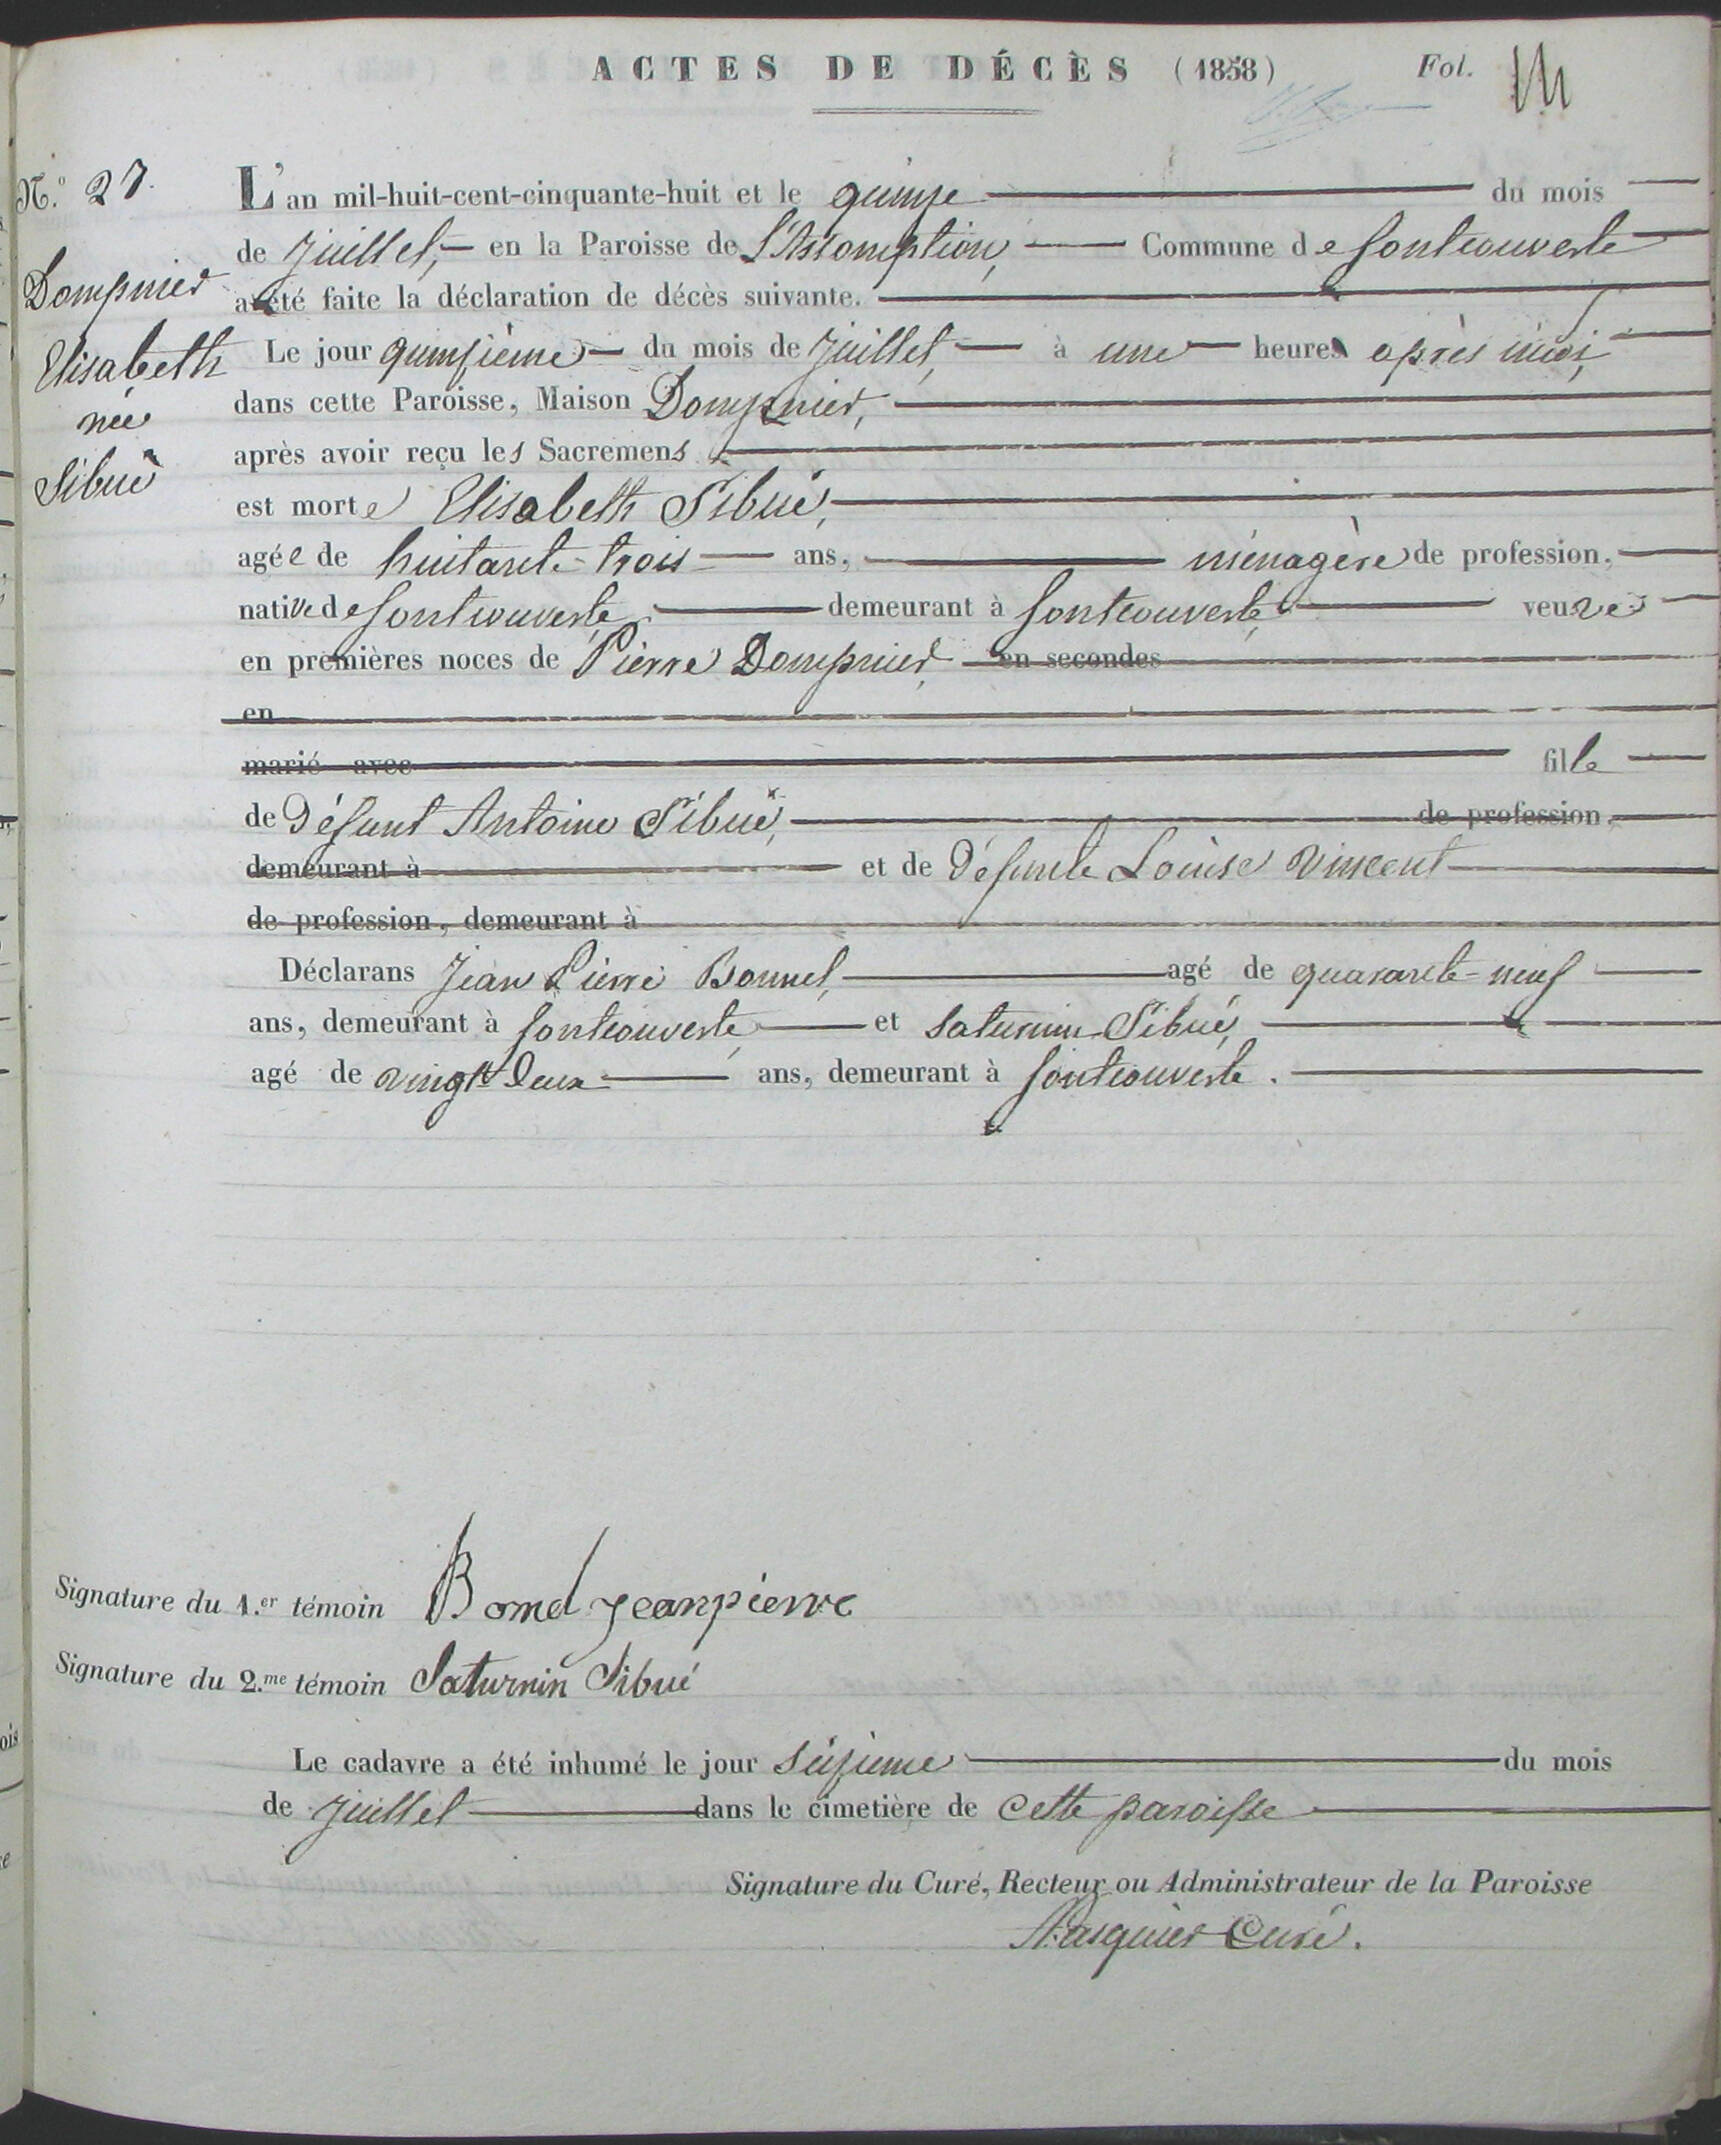 ACTES DE DÉCÈS (1858) Fol. 14
N.º 27.
Dompnier
Elisabeth
née
Sibué
L'an mil-huit-cent-cinquante-huit et le quinze du mois
de juillet, en la Paroisse de l'Assomption, Commune de fontcouverte
a été faite la déclaration de décès suivante.
Le jour quinzième du mois de juillet, à une heure après midi,
dans cette Paroisse, Maison Dompnier,
après avoir reçu les Sacremens
est morte Elisabeth Sibué,
agée de huitante-trois ans, ménagère de profession,
native de fontcouverte, demeurant à fontcouverte, veuve
en premières noces de Pierre Dompnier, en secondes
en
marié avec fille
de défunt Antoine Sibué, de profession,
demeurant à et de défunte Louise Vincent
de profession, demeurant à
Déclarans Jean Pierre Bonnel, agé de quarante-neuf
ans, demeurant à fontcouverte, et Saturnin Sibué,
agé de vingt deux ans, demeurant à fontcouverte.
Signature du 1.er témoin Bonel jeanpierre
Signature du 2.me témoin Saturnin Sibué
Le cadavre a été inhumé le jour seizieme du mois
de juillet dans le cimetière de cette paroisse
Signature du Curé, Recteur ou Administrateur de la Paroisse
Pasquier Curé.